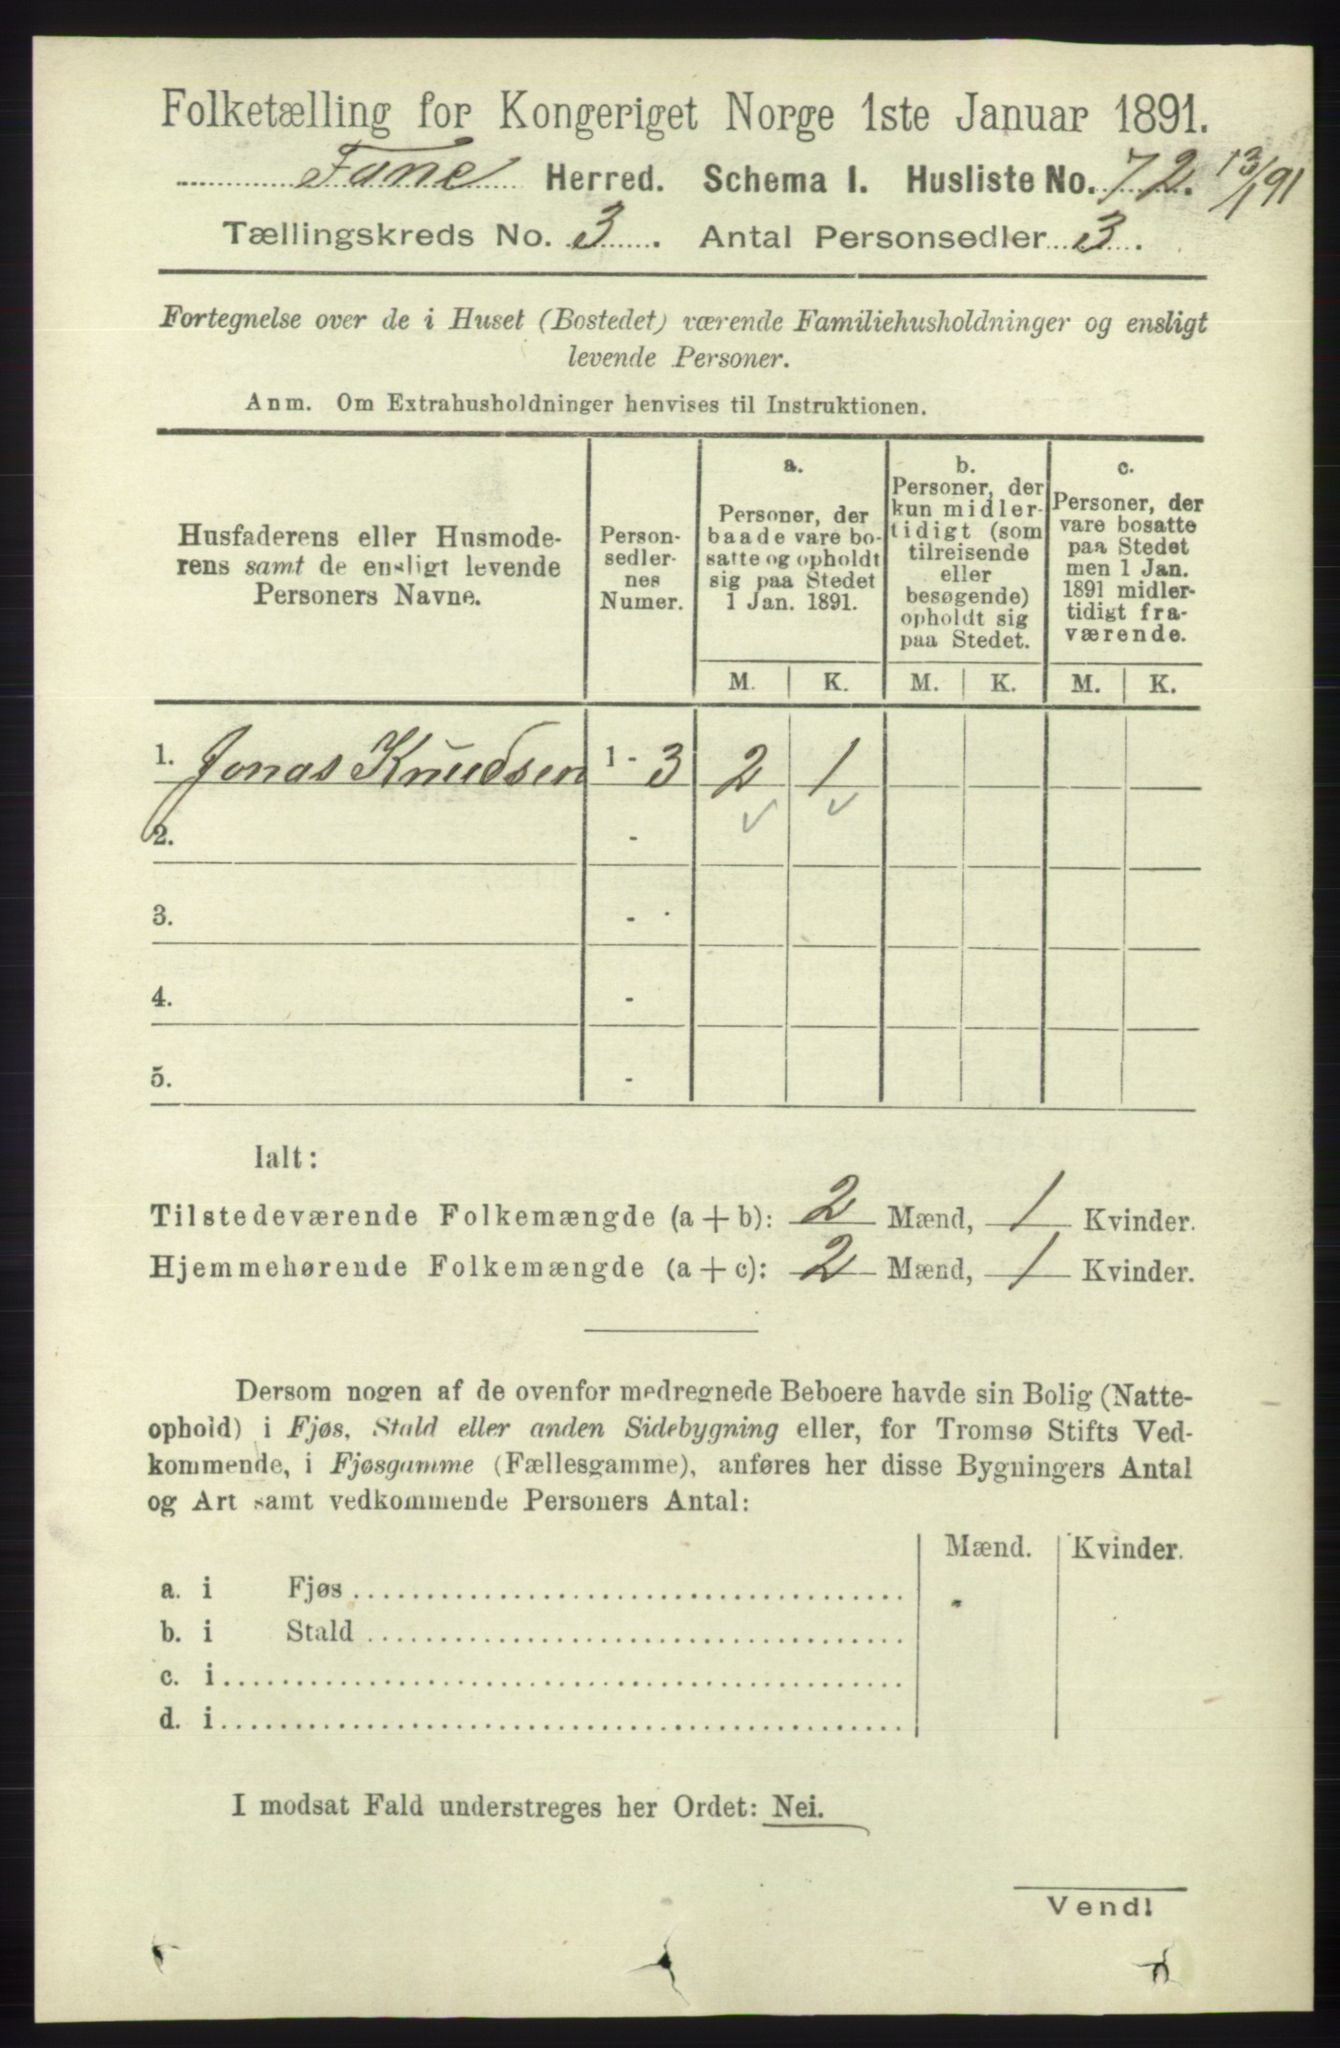 Folketælling for Kongeriget Norge 1ste Januar 1891.
Fane Herred. Schema I. Husliste No. 72. 13/1 91
Tællingskreds No. 3. Antal Personsedler 3.
Fortegnelse over de i Huset (Bostedet) værende Familiehusholdninger og ensligt
levende Personer.
Anm. Om Extrahusholdninger henvises til Instruktionen.
Husfaderens eller Husmode-
rens samt de ensligt levende
Personers Navne.
Person-
sedler-
nes
Numer.
a.
Personer, der
baade vare bo-
satte og opholdt
sig paa Stedet
1 Jan. 1891.
b.
Personer, der
kun midler-
tidigt (som
tilreisende
eller
besøgende)
opholdt sig
paa Stedet.
c.
Personer, der
vare bosatte
paa Stedet
men 1 Jan.
1891 midler-
tidigt fra-
værende.
M. K. M. K. M. K.
1. Jonas Knudsen 1 - 3 2 1
2. -
3. -
4. -
5. -
Ialt:
Tilstedeværende Folkemængde (a + b): 2 Mænd, 1 Kvinder.
Hjemmehørende Folkemængde (a + c): 2 Mænd, 1 Kvinder.
Dersom nogen af de ovenfor medregnede Beboere havde sin Bolig (Natte-
ophold) i Fjøs, Stald eller anden Sidebygning eller, for Tromsø Stifts Ved-
kommende, i Fjøsgamme (Fællesgamme), anføres her disse Bygningers Antal
og Art samt vedkommende Personers Antal:
Mænd. Kvinder.
a. i Fjøs
b. i Stald
c. i
d. i
I modsat Fald understreges her Ordet: Nei.
Vend!